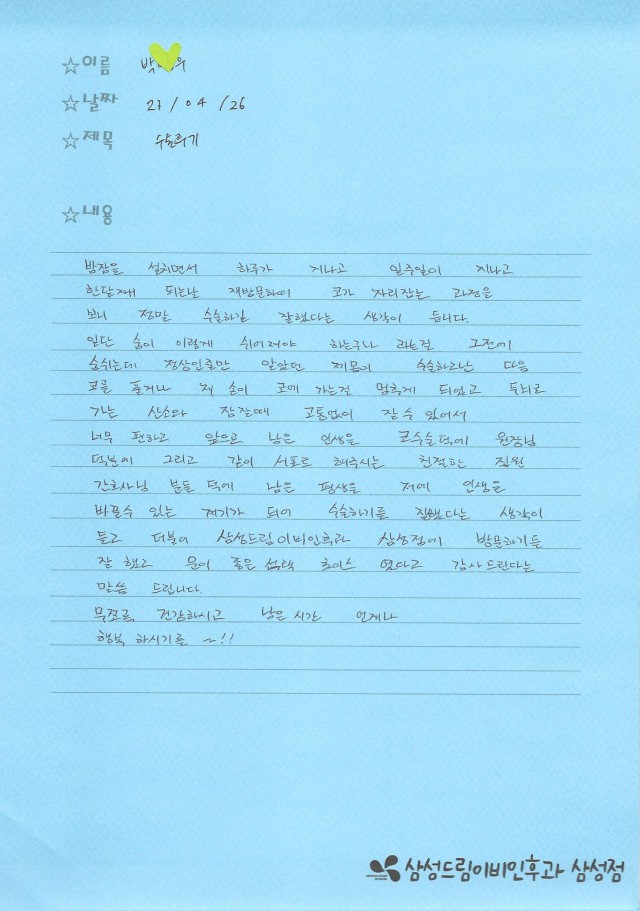 ☆이름 박
☆날짜 23/04/26
☆제목 수술후기
☆내용
밤잠을 설치면서 하루가 지나고 일주일이 지나고
한달째 되는날 재방문하여 코가 자리잡는 과정을
보니 정말 수술하길 잘했다는 생각이 듭니다.
일단 숨이 이렇게 쉬어져야 하는구나 라는걸 그전에
숨쉬는데 정상인줄만 알았던 제몸이 수술하고난 다음
코를 풀거나 제 손이 코에 가는걸 멈추게 되었고 두뇌로
가는 산소와 잠잘때 고통없이 잘 수 있어서
너무 편하고 앞으로 남은 인생을 코수술덕에 원장님
덕분에 그리고 같이 서포트 해주시는 친절한 직원
간호사님 분들 덕에 남은 평생을 저에 인생을
바꿀수 있는 계기가 되어 수술하기를 잘했다는 생각이
들고 더불어 삼성드림이비인후과 삼성점에 방문하기를
잘 했고 운이 좋은 선택 초이스 였다고 감사드린다는
말씀 드립니다.
무쪼록 건강하시고 남은 시간 언제나
행복 하시기를 ~!!
삼성드림이비인후과 삼성점